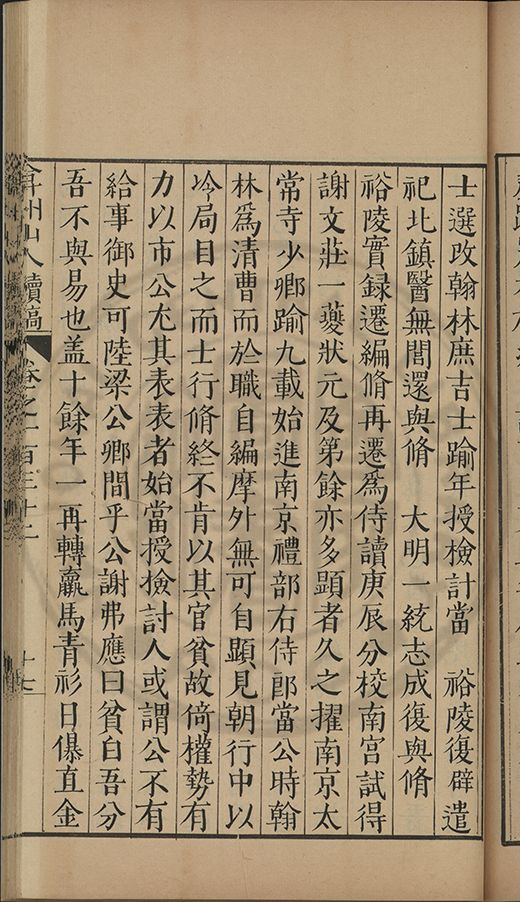 士選改翰林庶吉士踰年授檢計當　裕陵復辟遣
祀北鎮醫無閭還與脩　大明一統志成復與脩
裕陵實録遷編脩再遷爲侍讀庚辰分校南宫試得
謝文莊一夔狀元及第餘亦多顕者久之擢南京太
常寺少卿踰九載始進南京禮部右侍郎當公時翰
林爲清曹而於職自編摩外無可自顕見朝行中以
冷局目之而士行脩終不肯以其官貧故倚權勢有
力以市公尤其表表者始當授撿討人或謂公不有
給事御史可陸梁公卿間乎公謝弗應曰貧自吾分
吾不與易也盖十餘年一再轉羸馬青衫日儤直金
弇州山人續稿　卷之一百三十二　十七